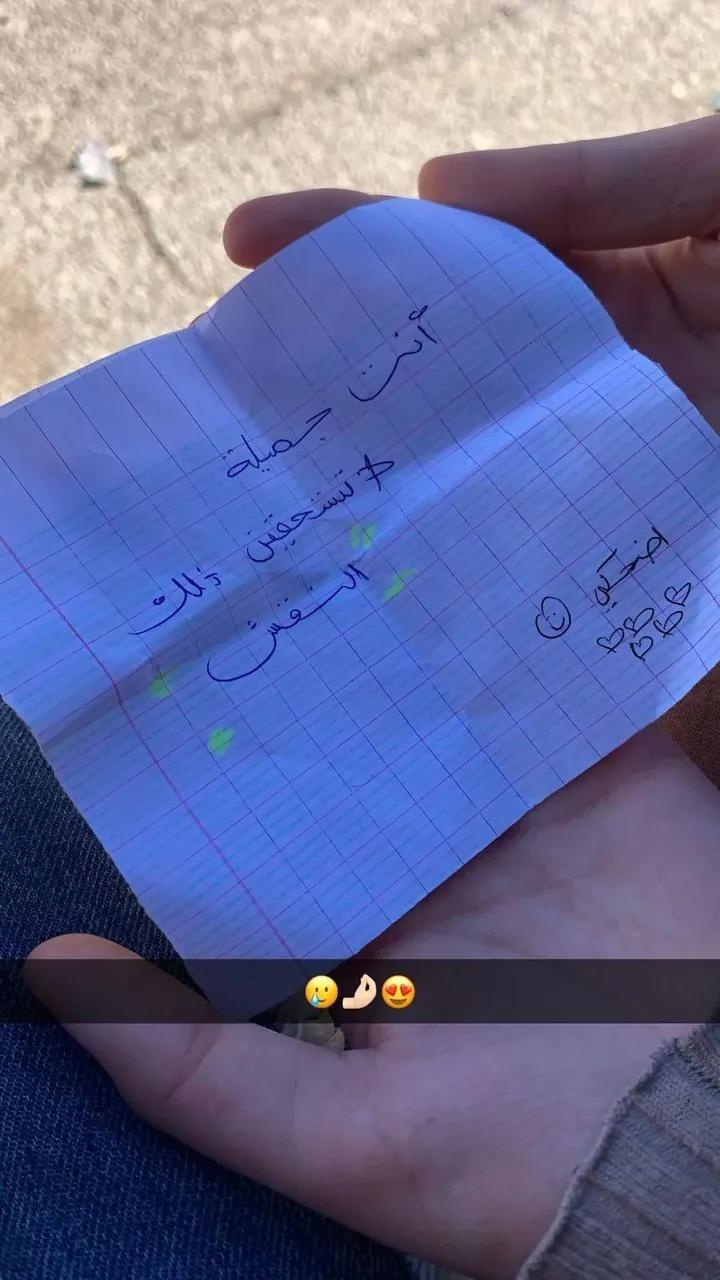 أنت جميلة
لا تستحقين ذلك
اضحكي ☺
♡♡♡♡♡
🥲🤌🏻😍